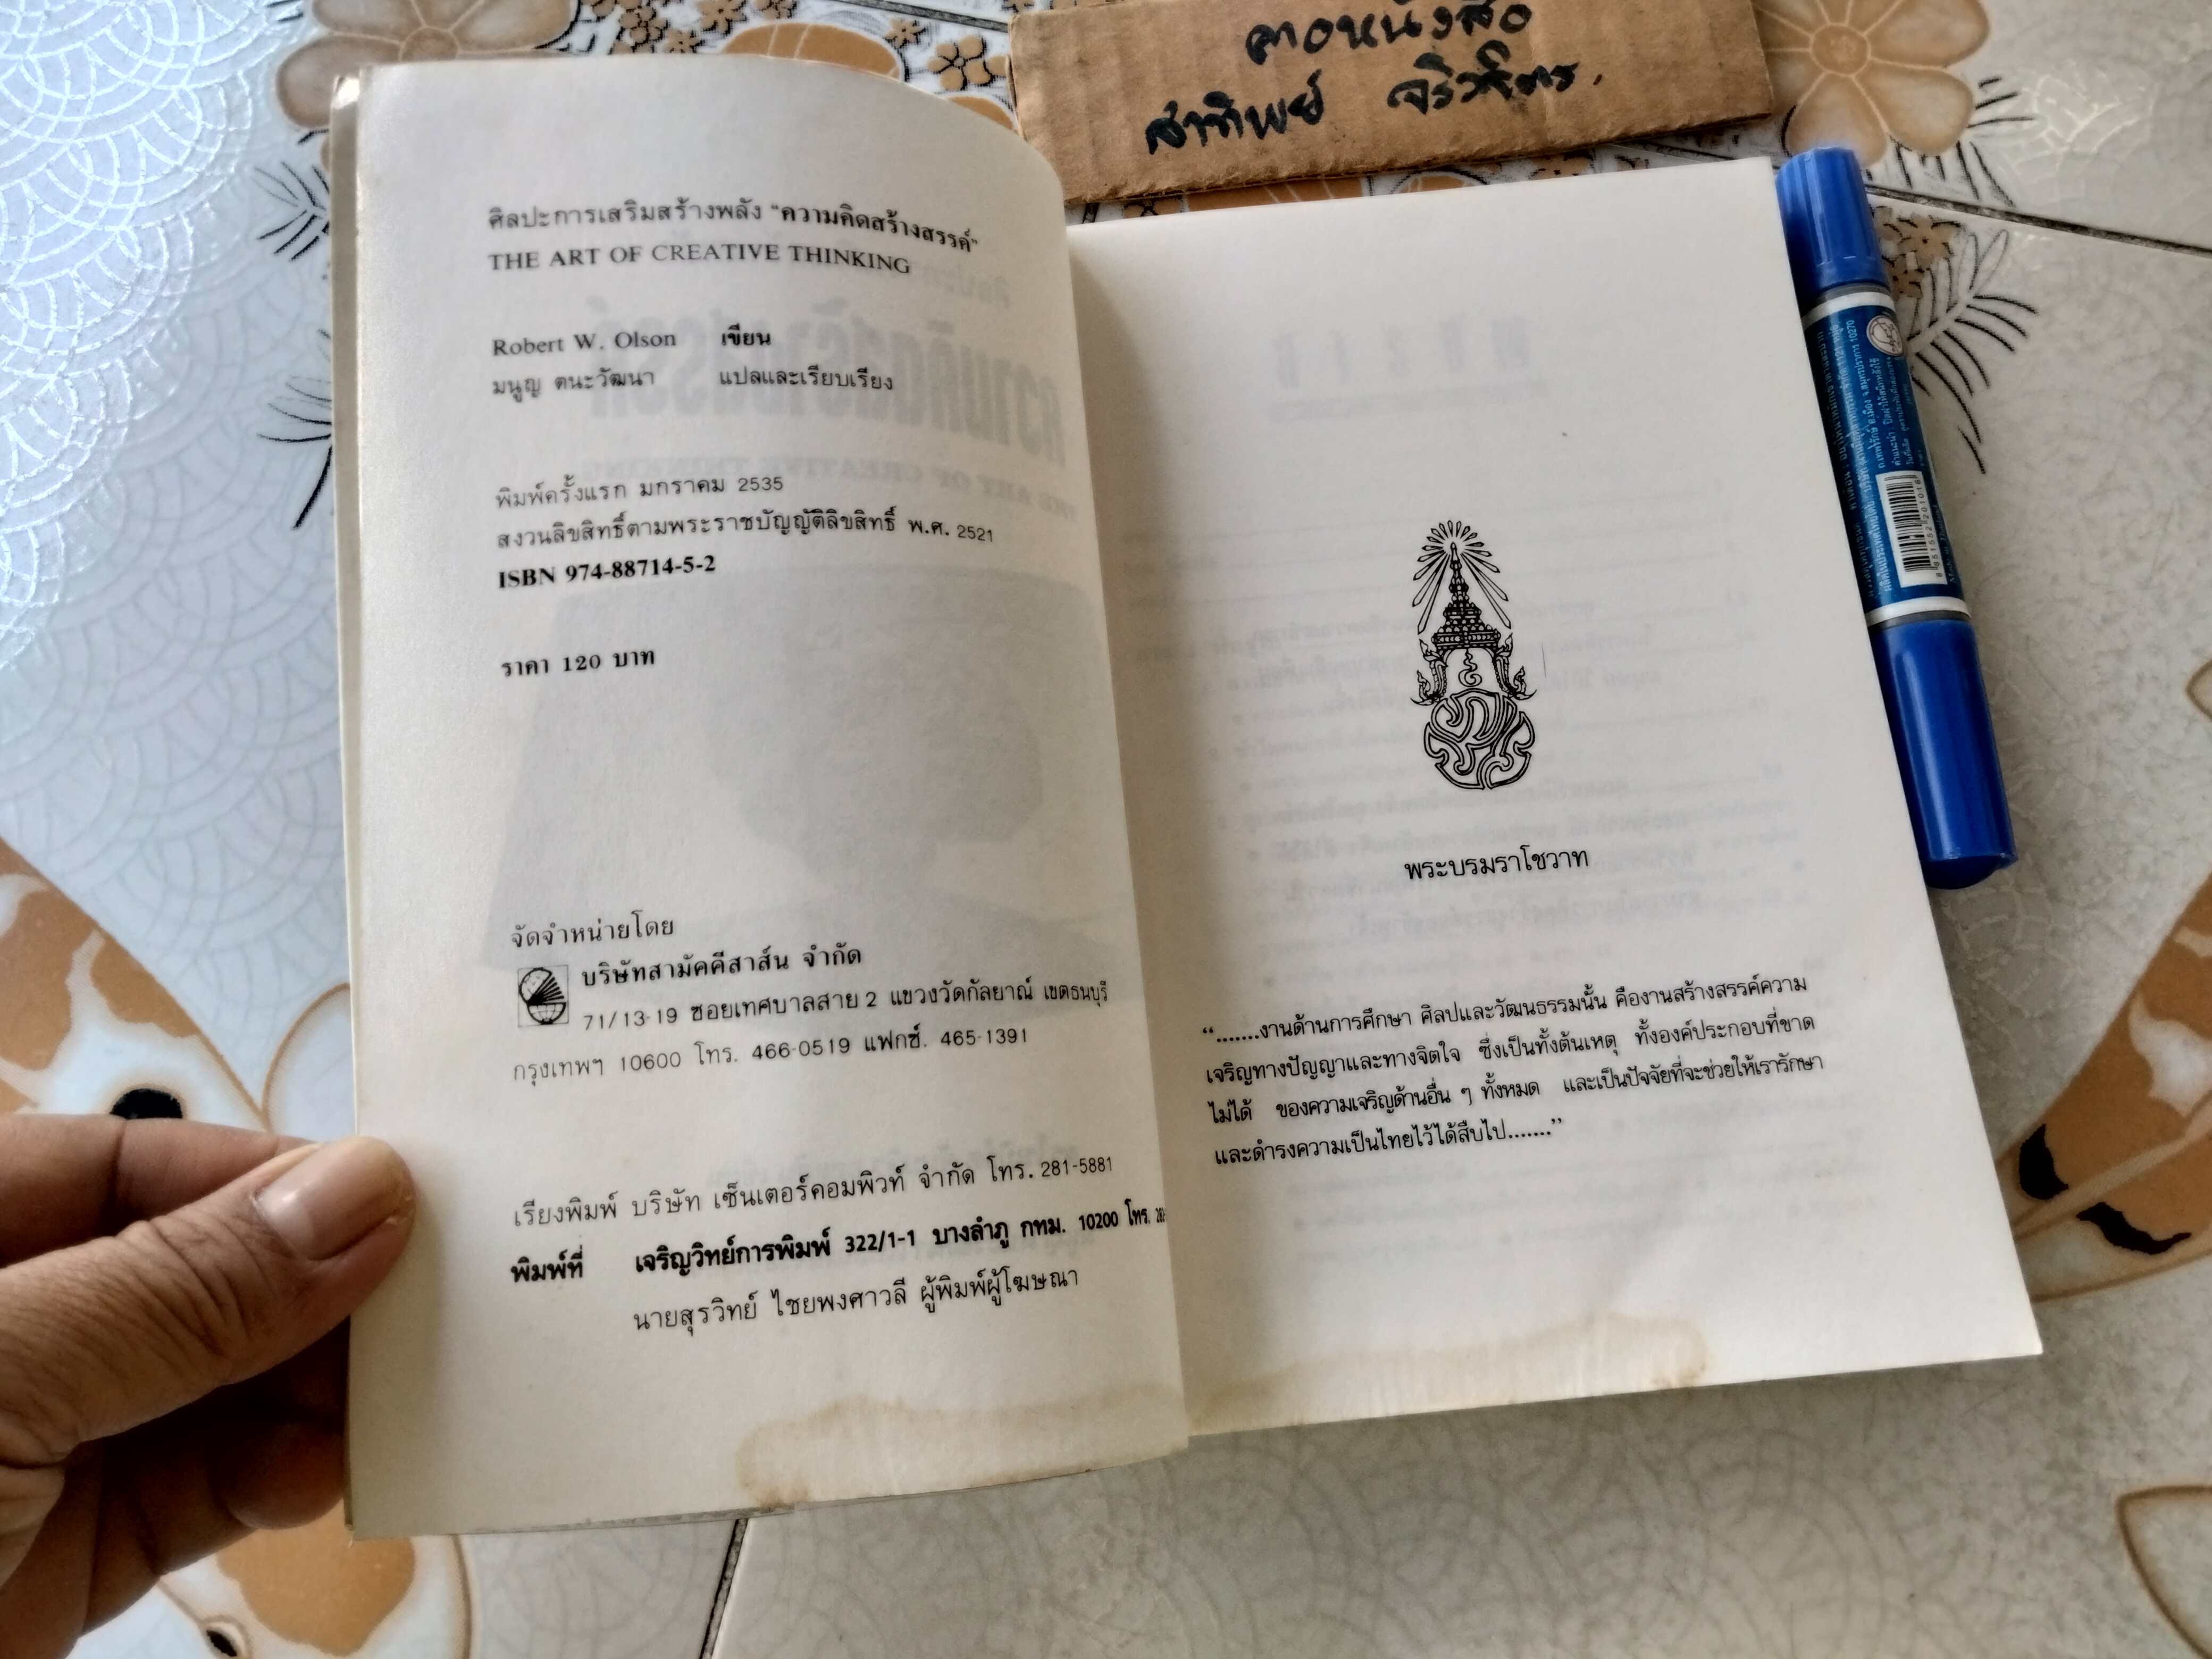 ศิลปะการเสริมสร้างพลัง "ความคิดสร้างสรรค์"
THE ART OF CREATIVE THINKING
Robert W. Olson เขียน
มนูญ ตนะวัฒนา แปลและเรียบเรียง
พิมพ์ครั้งแรก มกราคม 2535
สงวนลิขสิทธิ์ตามพระราชบัญญัติลิขสิทธิ์ พ.ศ. 2521
ISBN 974-88714-5-2
ราคา 120 บาท
จัดจำหน่ายโดย
บริษัทสามัคคีสาส์น จำกัด
71/13-19 ซอยเทศบาลสาย 2 แขวงวัดกัลยาณ์ เขตธนบุรี
กรุงเทพฯ 10600 โทร. 466-0519 แฟกซ์. 465-1391
เรียงพิมพ์ บริษัท เซ็นเตอร์คอมพิวท์ จำกัด โทร. 281-5881
พิมพ์ที่ เจริญวิทย์การพิมพ์ 322/1-1 บางลำภู กทม. 10200 โทร.
นายสุรวิทย์ ไชยพงศาวลี ผู้พิมพ์ผู้โฆษณา
พระบรมราโชวาท
".......งานด้านการศึกษา ศิลปและวัฒนธรรมนั้น คืองานสร้างสรรค์ความ
เจริญทางปัญญาและทางจิตใจ ซึ่งเป็นทั้งต้นเหตุ ทั้งองค์ประกอบที่ขาด
ไม่ได้ ของความเจริญด้านอื่น ๆ ทั้งหมด และเป็นปัจจัยที่จะช่วยให้เรารักษา
และดำรงความเป็นไทยไว้ได้สืบไป......."